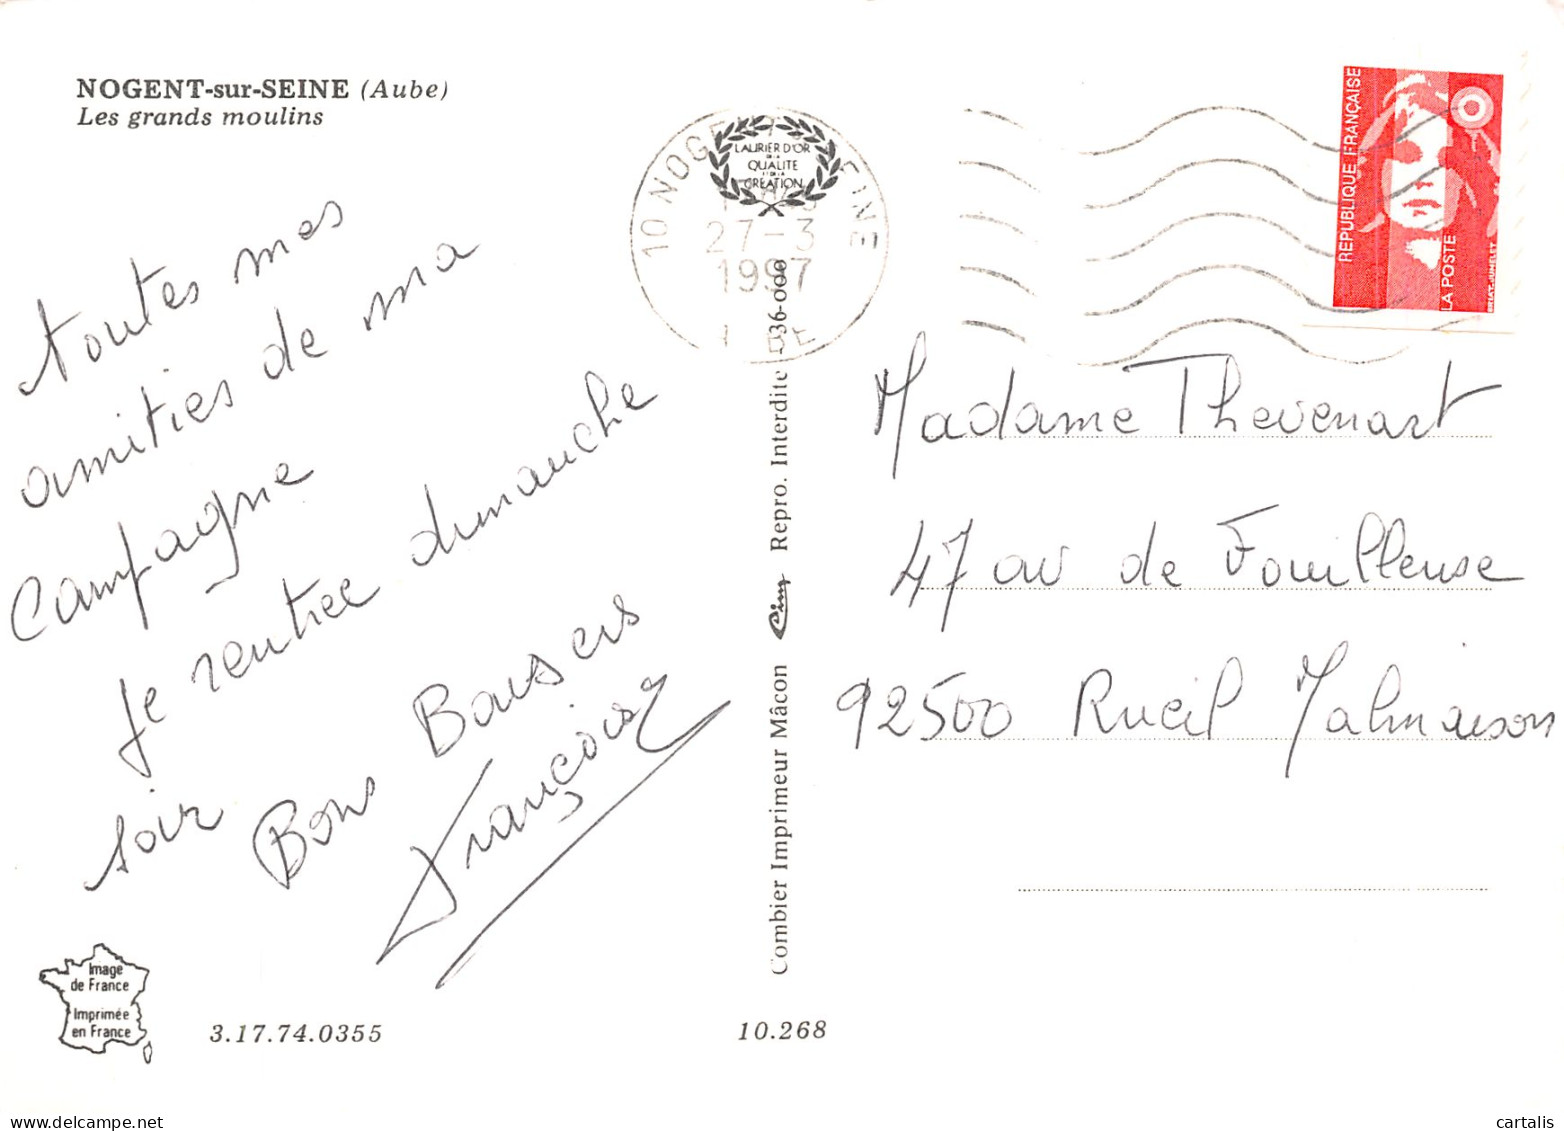 NOGENT-sur-SEINE (Aube)
Les grands moulins
toutes mes
amitiés de ma
Campagne
Je rentre dimanche
soir
Bons Baisers
Françoise
Image
de France
Imprimée
en France
3.17.74.0355
10.268
Combier Imprimeur Mâcon
Cim
Repro. Interdite
LAURIER D'OR
DE LA
QUALITE
ET DE LA
CREATION
27-3
1997
REPUBLIQUE FRANÇAISE
LA POSTE
Madame Thevenart
47 av de Fouilleuse
92500 Rueil Malmaison
cartalis